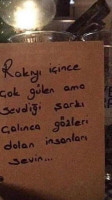 Rakıyı içince
çok gülen ama
sevdiği şarkı
çalınca gözleri
dolan insanları
sevin...